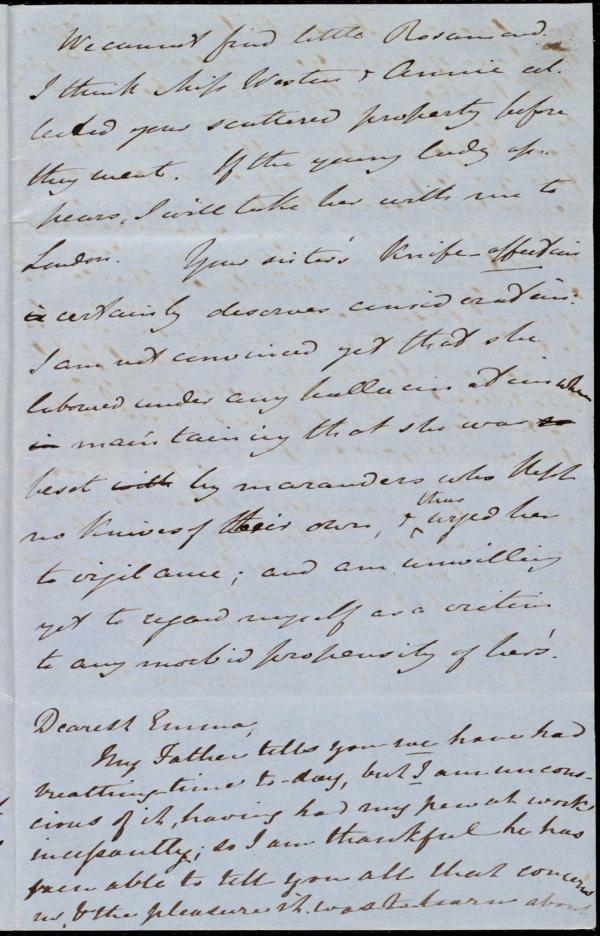 We cannot find little Rosamond.
I think Miss Weston & Annie col-
lected your scattered property before
they went. If the young lady ap-
pears, I will take her with me to
London. Your sister's Knife-affection
certainly deserves consideration.
I am not convinced yet that she
laboured under any hallucination when
in maintaining that she was
beset with by marauders who kept
no Knives of their own, & thus urged her
to vigilance; and am unwilling
yet to regard myself as a victim
to any morbid propensity of her's.
Dearest Emma,
My Father tells you we have had
breathing-time to-day, but I am uncons-
cious of it, having had my pen at work
incessantly; so I am thankful he has
been able to tell you all that concerns
us, & the pleasure it was to learn about